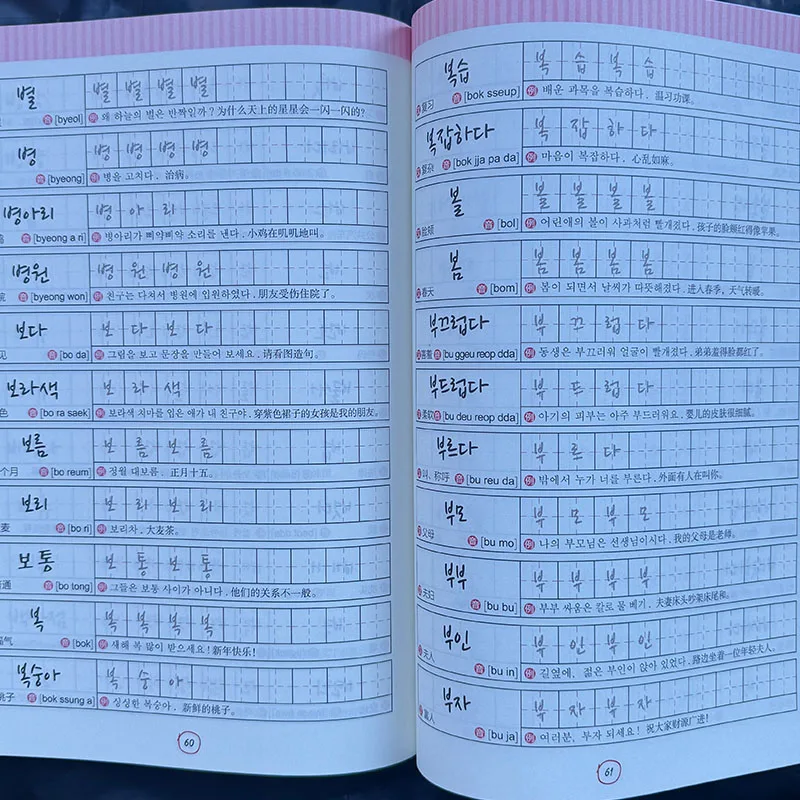 별 별 별 별 별
音 [byeol] 例 왜 하늘의 별은 반짝일까? 为什么天上的星星会一闪一闪的?
병 병 병 병 병
音 [byeong] 例 병을 고치다. 治病。
병아리 병 아 리
音 [byeong a ri] 例 병아리가 삐약삐약 소리를 낸다. 小鸡在叽叽地叫。
병원 병 원 병 원
院 音 [byeong won] 例 친구는 다쳐서 병원에 입원하였다. 朋友受伤住院了。
보다 보 다 보 다
见 音 [bo da] 例 그림을 보고 문장을 만들어 보세요. 请看图造句。
보라색 보 라 색
色 音 [bo ra saek] 例 보라색 치마를 입은 애가 내 친구야. 穿紫色裙子的女孩是我的朋友。
보름 보 름 보 름
个月 音 [bo reum] 例 정월 대보름. 正月十五。
보리 보 리 보 리
麦 音 [bo ri] 例 보리차. 大麦茶。
보통 보 통 보 통
通 音 [bo tong] 例 그들은 보통 사이가 아니다. 他们的关系不一般。
복 복 복 복 복
福气 音 [bok] 例 새해 복 많이 받으세요! 新年快乐!
복숭아 복 숭 아
桃子 音 [bok ssung a] 例 싱싱한 복숭아. 新鲜的桃子。
60
복습 복 습 복 습
复习 音 [bok sseup] 例 배운 과목을 복습하다. 温习功课。
복잡하다 복 잡 하 다
复杂 音 [bok jja pa da] 例 마음이 복잡하다. 心乱如麻。
볼 볼 볼 볼 볼
脸颊 音 [bol] 例 어린애의 볼이 사과처럼 빨개졌다. 孩子的脸颊红得像苹果。
봄 봄 봄 봄 봄
春天 音 [bom] 例 봄이 되면서 날씨가 따뜻해졌다. 进入春季，天气转暖。
부끄럽다 부 끄 럽 다
害羞 音 [bu ggeu reop dda] 例 동생은 부끄러워 얼굴이 빨개졌다. 弟弟羞得脸都红了。
부드럽다 부 드 럽 다
柔软 音 [bu deu reop dda] 例 아기의 피부는 아주 부드러워요. 婴儿的皮肤很细腻。
부르다 부 르 다
叫、称呼 音 [bu reu da] 例 밖에서 누가 너를 부른다. 外面有人在叫你。
부모 부 모 부 모
父母 音 [bu mo] 例 나의 부모님은 선생님이시다. 我的父母是老师。
부부 부 부 부 부
夫妇 音 [bu bu] 例 부부 싸움은 칼로 물 베기. 夫妻床头吵架床尾和。
부인 부 인 부 인
夫人 音 [bu in] 例 길옆에. 젊은 부인이 앉아 있었다. 路边坐着一位年轻夫人。
부자 부 자 부 자
富人 音 [bu ja] 例 여러분, 부자 되세요! 祝大家财源广进!
61